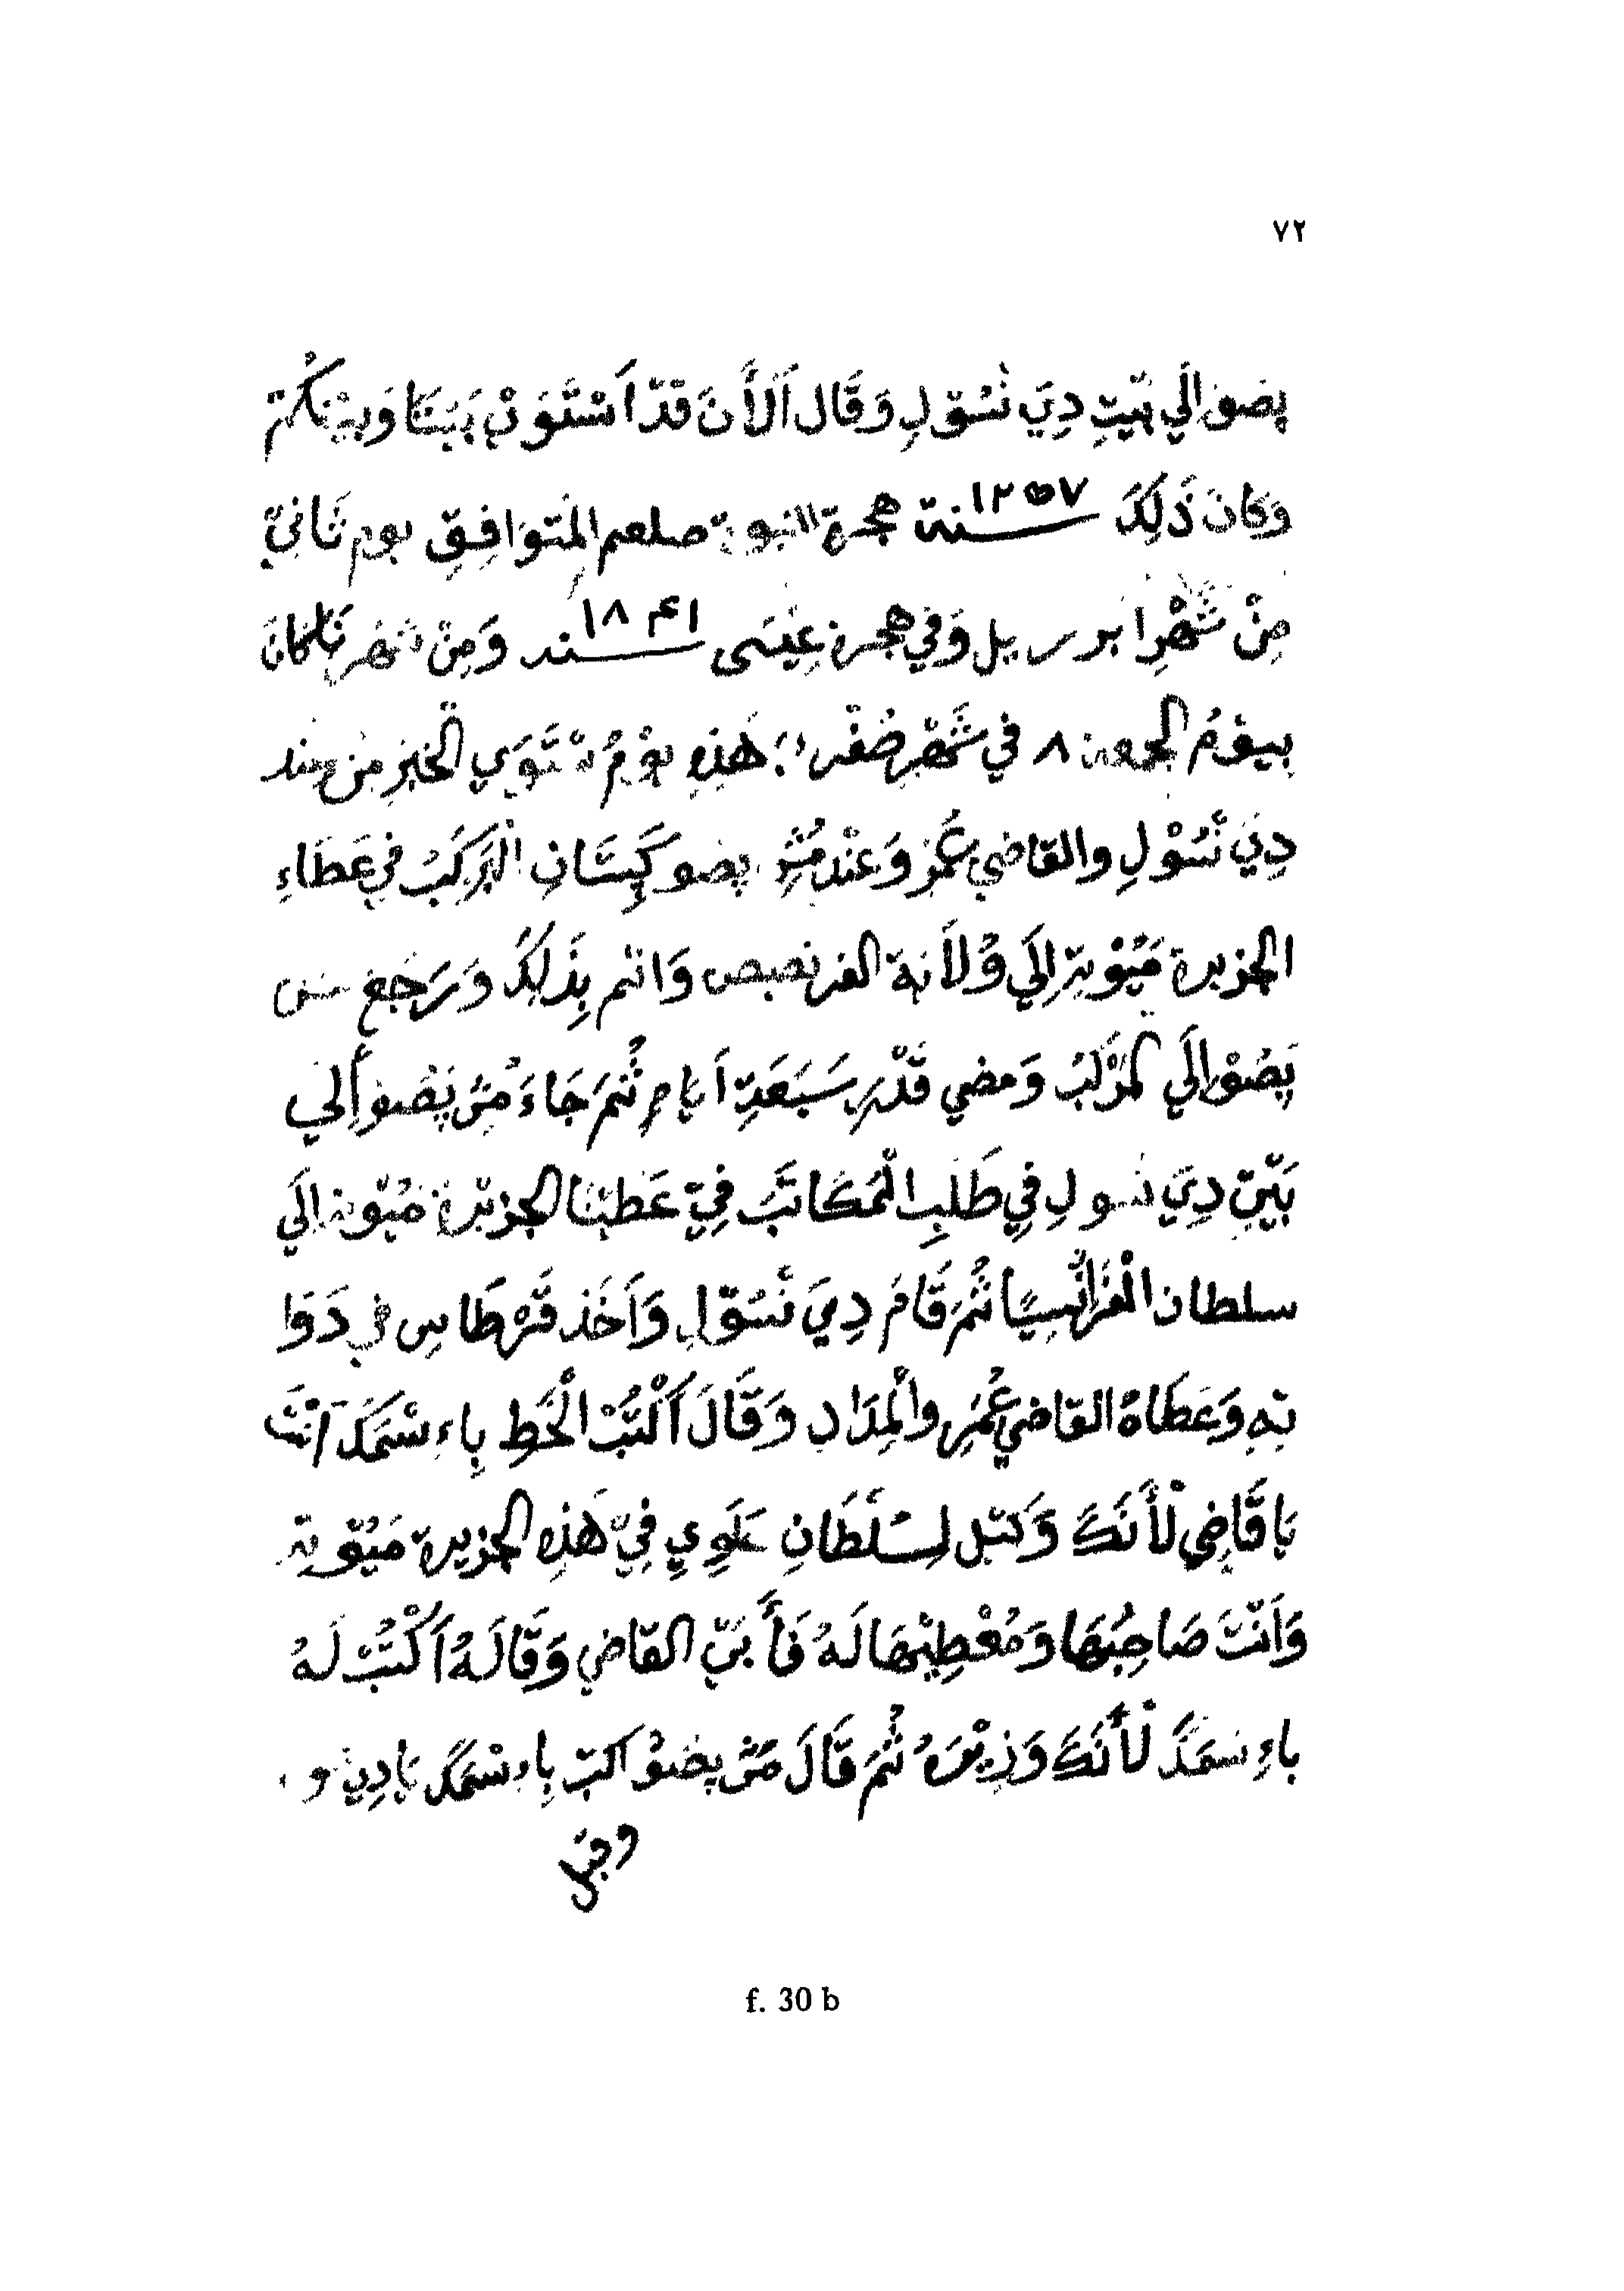 ٧٢
پضو الَي بَيتِ دِيَ نْسُوْلِ وَقَال اَلأَنَ قدّ اَسْتَوَيْ بَيْنَنَا وَبَيْنَكُمْ
وَكانَ ذَلِكَ سنة ١٢٥٧ هجرة النبوية صلعم المتَوَافِقِ يوم ثَانيْ
مِنْ شَهْرِ ابرريل وَفي هجرة عِيْسَى سند ١٨٤١ وَمِنْ شهر كَانَ
بيوْمُ الجمعة ٨ في شَهْرِ صَفَر هَذِهِ يوْمُ سْتَوَي الخَبَرِ مِنْ عند
دِيَ نْسُوْلِ والقاضي عُمَرْ وَعَنْد مُسْ پضو كَپِتَانِ الْمَرْكَبُ في عَطَاءِ
الجزيرة مَيُوْتِةِ إلَي وُلَايَة الفرنصيص وَاتم بِذَلِكَ وَرَجَعَ مُسْ
پَضُوْ إلَي الْمَرْكَبُ وَمضي قَدْرِ سَبَعَةِ اَيامِ ثُمَ جَاءَ مُسُ پَضُو إلَي
بَيْتِ دِيَ نسولِ فِي طَلَبِ الْمَكَاتَبُ فِيْ عَطيْنَا الجزيْرة مَيُوتة الَي
سلطان الْفَرَانْسِيْيًا ثُمَ قَامَ دِيَ نْسُوْلِ وَاَخَذ قَرْطَاسِ في دَوَا
تِهِ وَعَطَاهُ القاضي عُمَرِ والْمِدَادِ وَقَالَ اَكْتُبْ الْخَطِ بِاءِسْمَكَ اَنْتَ
يَا قَاضِي لأَنَكَ وَكيْل لِسُلْطَانِ عَلَوِي فِيْ هَذِهِ الجزيرة مَيُوْتة
وَاَنْتَ صَاحِبُهَا وَمُعْطِيْهَا لَهُ فَأَبَيْ القاضي وَقَالَهُ اَكْتُبْ لَهُ
باءِسمَكَ لأَنَكَ وَزِيْرَهُ ثُمَ قَالَ مُسْ پضوْ اكتبْ بِاءِسْمَكَ يَا دِيَ
وفي
f. 30 b